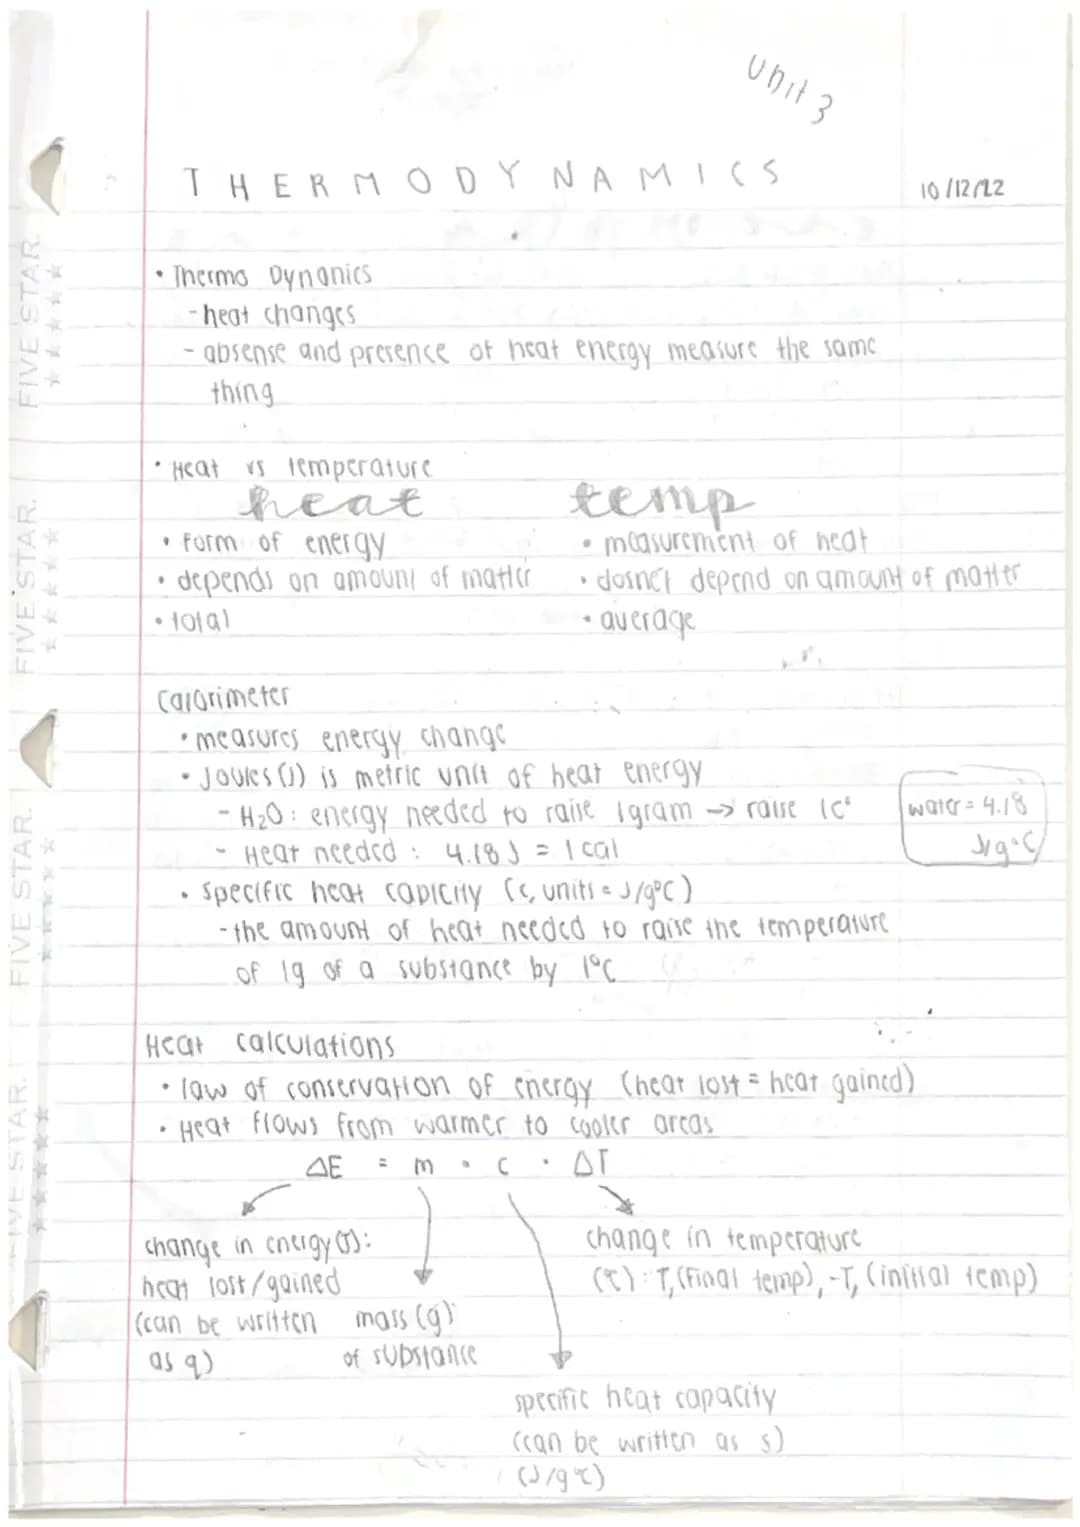 Unit 3
THERMODYNAMICS
10/12/22
• Thermo Dynanics
- heat changes
- absense and presence of heat energy measure the same
thing
• Heat vs temperature
heat temp
• form of energy • measurement of heat
• depends on amount of matter • dosnet depend on amount of matter
• total • average
Calorimeter
• measures energy change
• Joules (J) is metric unit of heat energy
- H₂O: energy needed to raise 1gram → raise 1C°
water = 4.18
J/g°C
- Heat needed: 4.18 J = 1 cal
• specific heat capicity (c, units = J/g°C)
- the amount of heat needed to raise the temperature
of 1g of a substance by 1°C
Heat calculations
• law of conservation of energy (heat lost = heat gained)
• Heat flows from warmer to cooler areas
ΔE = m • c • ΔT
change in energy (J):
heat lost/gained
(can be written
as q)
mass (g)
of substance
change in temperature
(°C): T, (final temp), -T, (initial temp)
specific heat capacity
(can be written as s)
(J/g°C)
FIVE STAR.
FIVE STAR.
FIVE STAR.
FIVE STAR.